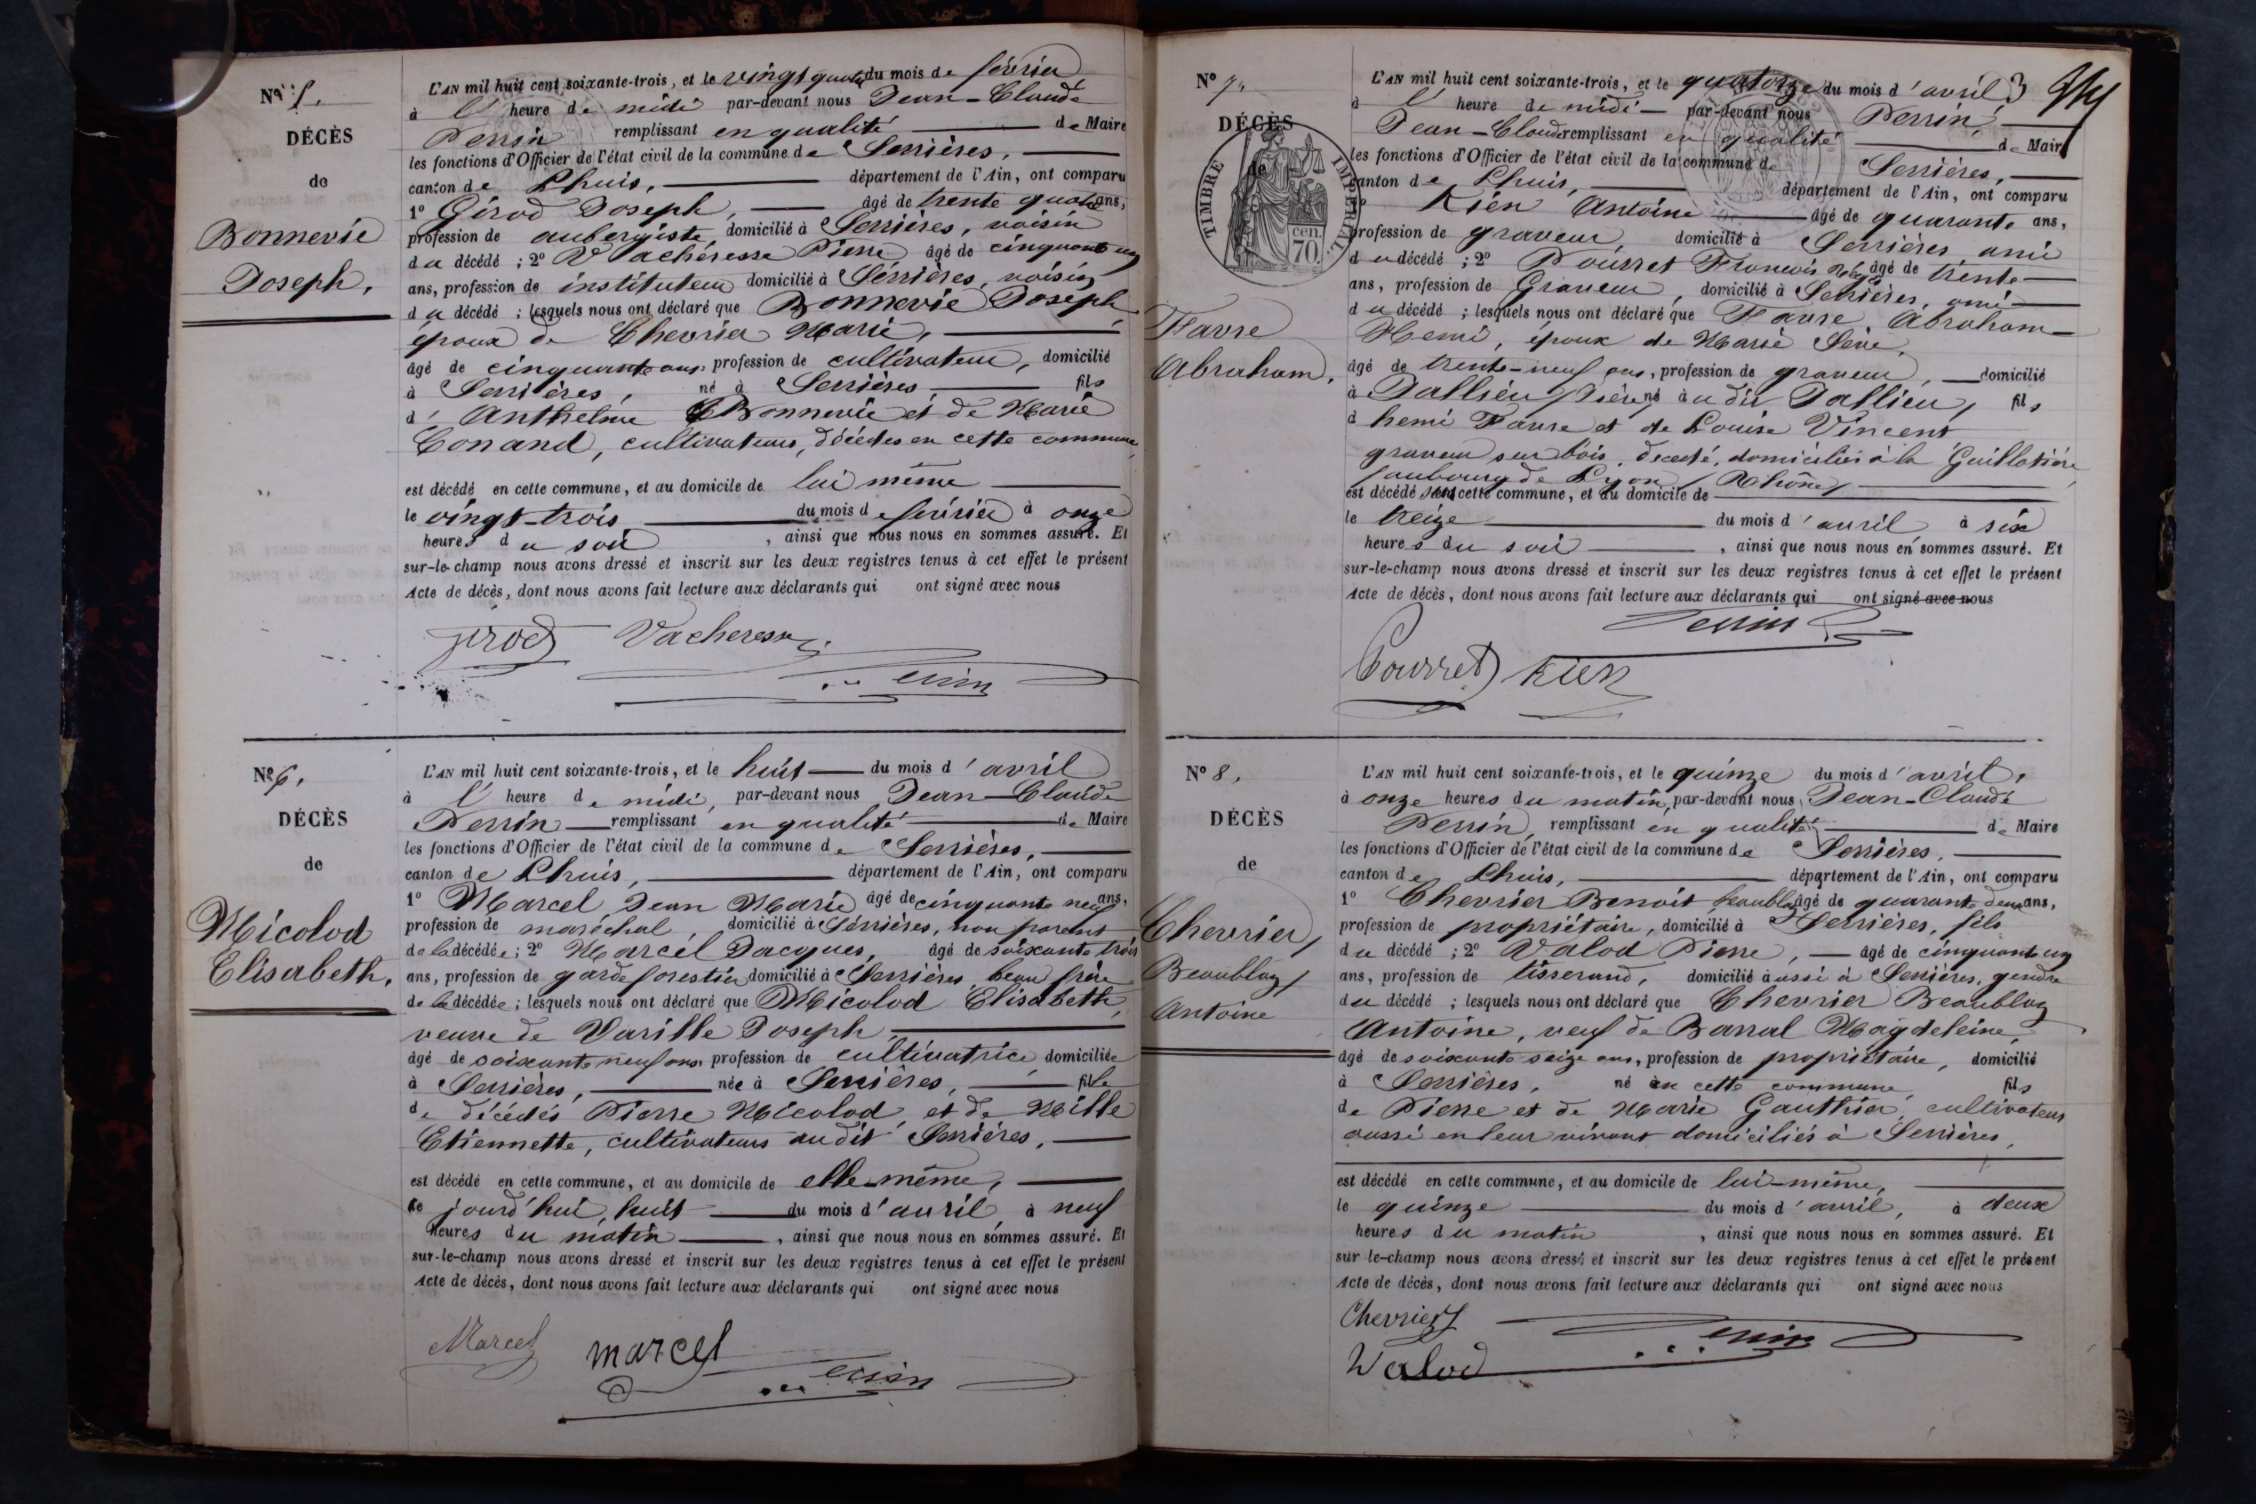 Nº 5.
DÉCÈS
de
Bonnevie
Joseph.
L'AN mil huit cent soixante-trois, et le vingt quatre du mois de février
à l' heure de midi par-devant nous Jean-Claude
Perrin remplissant en qualité de Maire
les fonctions d'Officier de l'état civil de la commune de Serrières,
canton de Lhuis, département de l'Ain, ont comparu
1º Gérod Joseph, âgé de trente quatre ans,
profession de aubergiste, domicilié à Serrières, voisin
du décédé ; 2º Vachéresse Pierre âgé de cinquante un
ans, profession de instituteur domicilié à Serrières, voisin
du décédé ; lesquels nous ont déclaré que Bonnevie Joseph
époux de Chevrier Marie,
âgé de cinquante ans profession de cultivateur, domicilié
à Serrières, né à Serrières fils
d' Anthelme Bonnevie et de Marie
Conand, cultivateurs, décédés en cette commune,
est décédé en cette commune, et au domicile de lui même
le vingt-trois du mois de février à onze
heures du soir , ainsi que nous nous en sommes assuré. Et
sur-le-champ nous avons dressé et inscrit sur les deux registres tenus à cet effet le présent
Acte de décès, dont nous avons fait lecture aux déclarants qui ont signé avec nous
Gerod Vacheresse
Perrin
Nº 6.
DÉCÈS
de
Micolod
Elisabeth.
L'AN mil huit cent soixante-trois, et le huit du mois d'avril
à l' heure de midi, par-devant nous Jean-Claude
Perrin remplissant en qualité de Maire
les fonctions d'Officier de l'état civil de la commune de Serrières,
canton de Lhuis, département de l'Ain, ont comparu
1º Marcel Jean Marie âgé de cinquante neuf ans,
profession de maréchal, domicilié à Serrières, non parent
de la décédée ; 2º Marcel Jacques, âgé de soixante trois
ans, profession de garde forestier domicilié à Serrières beau frère
de la décédée ; lesquels nous ont déclaré que Micolod Elisabeth,
veuve de Varille Joseph
âgé de soixante neuf ans profession de cultivatrice, domiciliée
à Serrières, née à Serrières, fille
de décédés Pierre Micolod et de Mille
Etiennette, cultivateurs audit Serrières,
est décédé en cette commune, et au domicile de elle-même,
le jourd'hui huit du mois d'avril à neuf
heures du matin , ainsi que nous nous en sommes assuré. Et
sur-le-champ nous avons dressé et inscrit sur les deux registres tenus à cet effet le présent
Acte de décès, dont nous avons fait lecture aux déclarants qui ont signé avec nous
Marcel marcel
Perrin
Nº 7.
DÉCÈS
de
TIMBRE IMPÉRIAL
cen.
70.
Favre
Abraham.
3
L'AN mil huit cent soixante-trois, et le quatorze du mois d'avril
à l' heure de midi par-devant nous Perrin
Jean-Claude remplissant en qualité de Maire
les fonctions d'Officier de l'état civil de la commune de Serrières,
canton de Lhuis, département de l'Ain, ont comparu
1º Kien Antoine âgé de quarante ans,
profession de graveur, domicilié à Serrières ami
du décédé ; 2º Pourret François âgé de trente
ans, profession de Graveur, domicilié à Serrières, ami
du décédé ; lesquels nous ont déclaré que Favre Abraham
Henri, époux de Marie Sève,
âgé de trente-neuf ans, profession de graveur, domicilié
à Jallieu (Isère) né audit Jallieu, fils
d henri Favre et de Louise Vincent
graveur sur bois, décédé, domiciliés à la Guillotière
faubourg de Lyon (Rhône)
est décédé en cette commune, et au domicile de
le treize du mois d'avril à six
heures du soir , ainsi que nous nous en sommes assuré. Et
sur-le-champ nous avons dressé et inscrit sur les deux registres tenus à cet effet le présent
Acte de décès, dont nous avons fait lecture aux déclarants qui ont signé avec nous
Perrin
Pourret Kien
Nº 8.
DÉCÈS
de
Chevrier,
Beaublez,
Antoine
L'AN mil huit cent soixante-trois, et le quinze du mois d'avril,
à onze heures du matin, par-devant nous Jean-Claude
Perrin, remplissant en qualité de Maire
les fonctions d'Officier de l'état civil de la commune de Serrières,
canton de Lhuis, département de l'Ain, ont comparu
1º Chevrier Benoit âgé de quarante deux ans,
profession de propriétaire, domicilié à Serrières, fils
du décédé ; 2º Valod Pierre, âgé de cinquante un
ans, profession de tisserand, domicilié aussi à Serrières, gendre
du décédé ; lesquels nous ont déclaré que Chevrier Beaublez
Antoine, veuf de Barral Magdeleine,
âgé de soixante seize ans, profession de propriétaire, domicilié
à Serrières, né en cette commune, fils
de Pierre et de Marie Gauthier, cultivateurs
aussi en leur vivant domiciliés à Serrières,
est décédé en cette commune, et au domicile de lui-même,
le quinze du mois d'avril, à deux
heures du matin , ainsi que nous nous en sommes assuré. Et
sur-le-champ nous avons dressé et inscrit sur les deux registres tenus à cet effet le présent
Acte de décès, dont nous avons fait lecture aux déclarants qui ont signé avec nous
Chevrier
Perrin
Valod